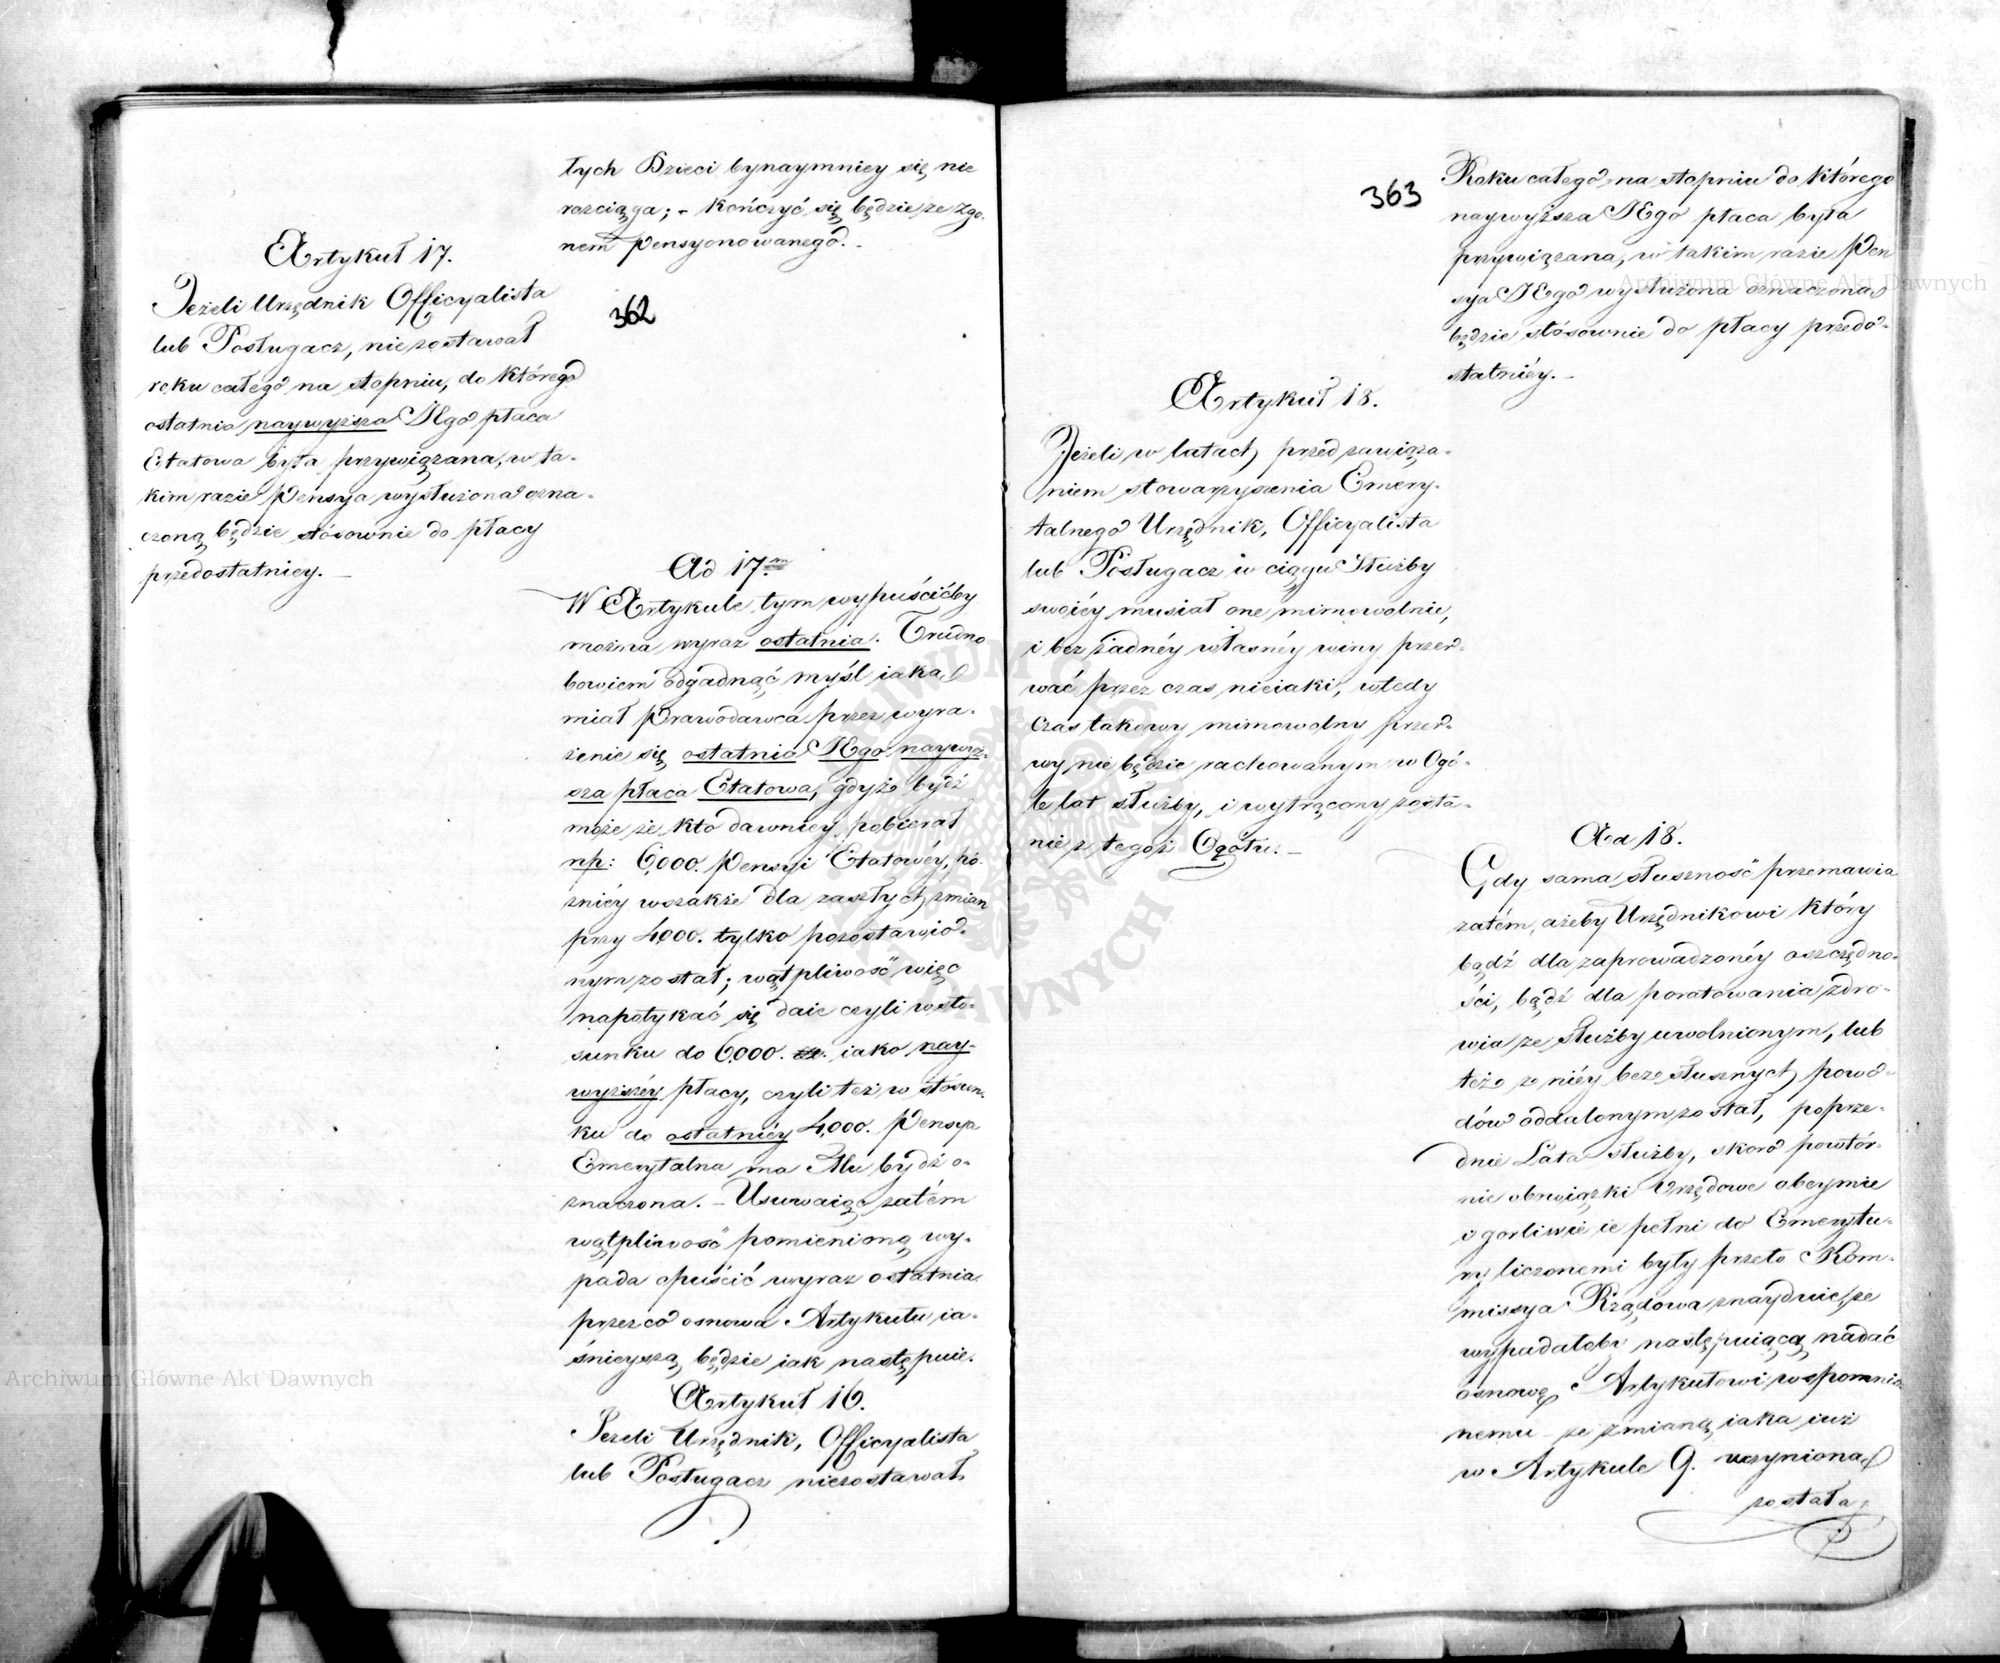 Artykuł 17.
Jeżeli Urzędnik Officyalista
lub Posługacz, nie zostawał
roku całego na stopniu, do którego
ostatnia naywyższa JEgo płaca
Etatowa była przywiązana, w ta-
kim razie Pensya wysłużona ozna-
czoną będzie stósownie do płacy
przedostatniey. –
tych Dzieci bynaymniey się nie
rozciąga; – kończyć się będzie ze zgo-
nem pensyonowanego. –
362
Ad 17.m
W Artykule tym wypuścićby
można wyraz ostatnia. Trudno
bowiem odgadnąć myśl iaką
miał Prawodawca przez wyra-
żenie się ostatnia JEgo naywyż-
sza płaca Etatowa, gdyż bydź
może że kto dawniey pobierał
np: 6,000. Pensyi Etatowéy, pó-
źniéy wszakże dla zaszłych zmian
przy 4,000. tylko pozostawio-
nym został; wątpliwość więc
napotykać się daie czyli w sto-
sunku do 6,000. iako nay-
wyższéy płacy, czyli też w stósun-
ku do ostatniéy 4,000. Pensya
Emerytalna ma Mu bydź o-
znaczona. – Usuwaiąc zatém
wątpliwość pomienioną wy-
pada opuścić wyraz ostatnia
przez co osnowa Artykułu ia-
śnieyszą będzie iak następuie.
Artykuł 16.
Jeżeli Urzędnik, Officyalista
lub Posługacz niezostawał
363
Roku całego na stopniu do którego
naywyższa JEgo płaca była
przywiązana, w takim razie Pen
sya JEgo wysłużona oznaczona
będzie stósownie do płacy przedo-
statniéy. –
Artykuł 18.
Jeżeli w latach przed zawiąza-
niem stowarzyszenia Emery-
talnego Urzędnik, Officyalista
lub Posługacz w ciągu Służby
swoiéy musiał one mimowolnie,
i bez żadnéy własnéy winy przer-
wać przez czas nieiaki, wtedy
czas takowy mimowolny przer-
wy nie będzie rachowanym w Ogó-
le lat służby, i wytrącony zosta-
nie z tegoż Ogółu. –
Ad 18.
Gdy sama słuszność przemawia
zatém, ażeby Urzędnikowi który
bądź dla zaprowadzonéy oszczędno-
ści, bądź dla poratowania zdro-
wia ze Służby uwolnionym, lub
też z niéy bez słusznych powo-
dów oddalonym został, poprze-
dnie Lata służby, skoro powtór-
nie obowiązki Urzędowe obeymie
i gorliwie ie pełni do Emerytu-
ry liczonemi były przeto Kom-
missya Rządowa znayduie, że
wypadałoby następuiącą nadać
osnowę Artykułowi wspomnio
nemu ze zmianą iaka iuż
w Artykule 9. uczyniona
została;